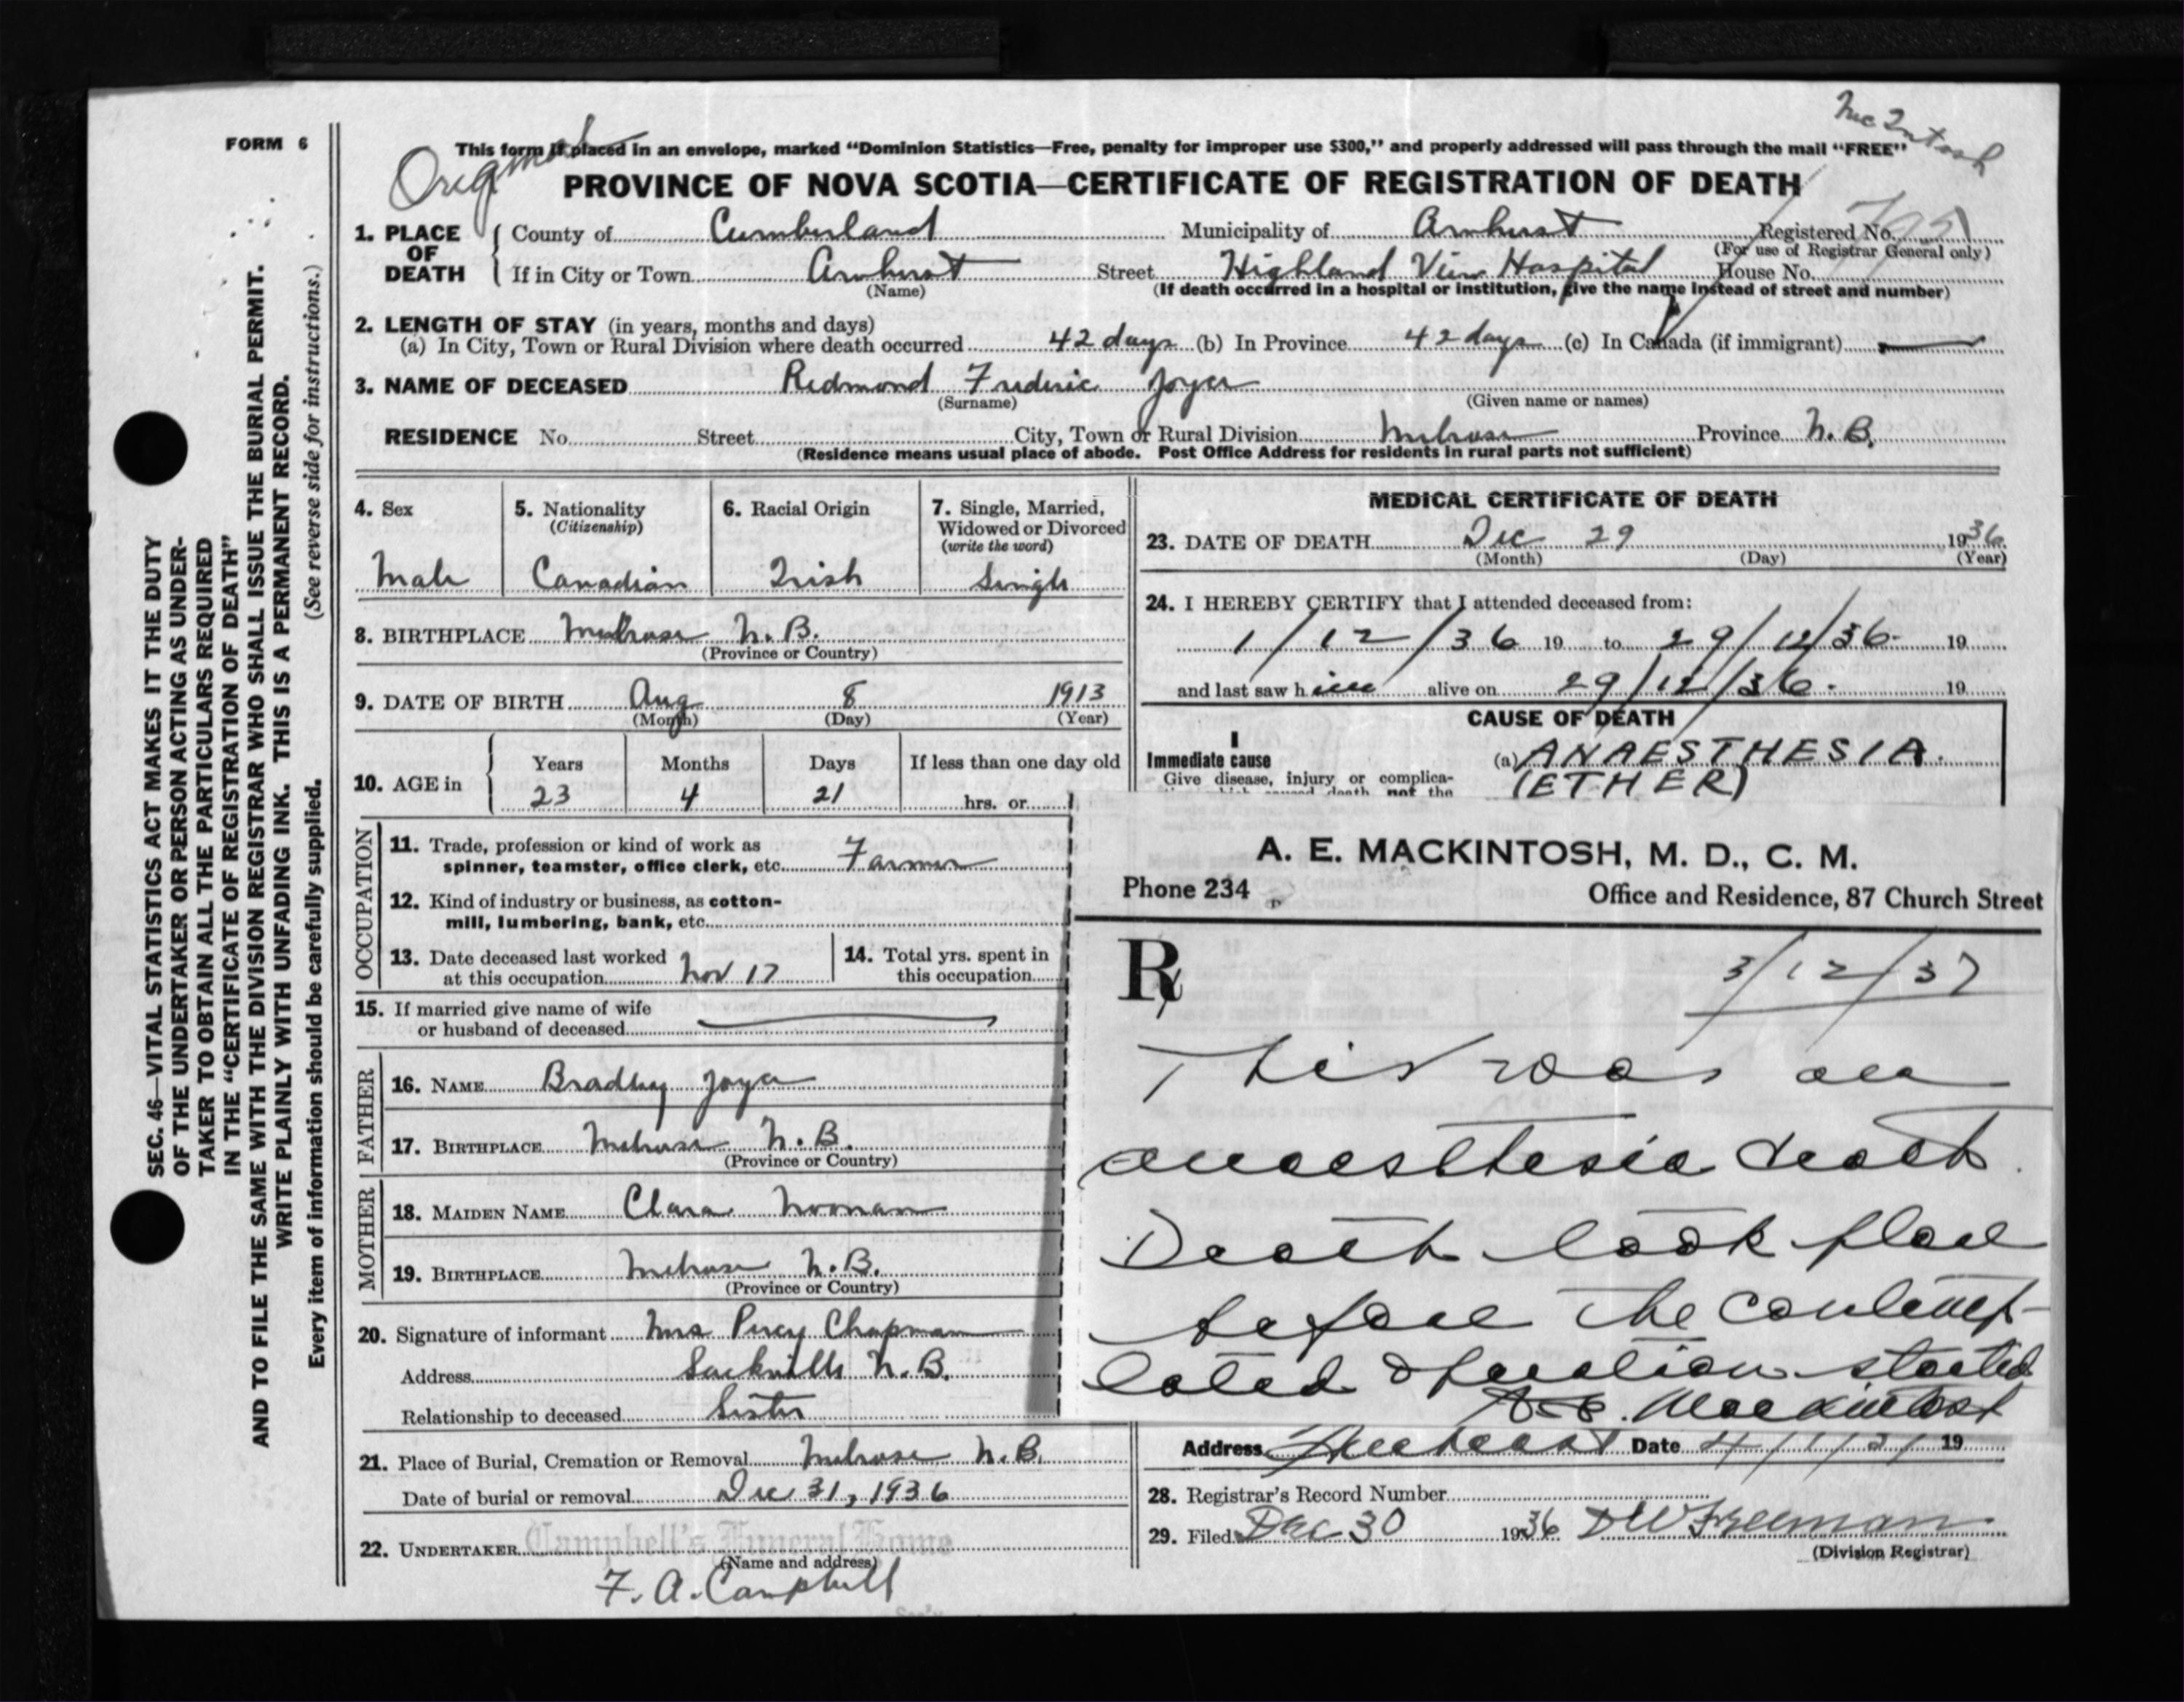 Mc Intosh
FORM 6
Original
This form if placed in an envelope, marked "Dominion Statistics—Free, penalty for improper use $300," and properly addressed will pass through the mail "FREE"
PROVINCE OF NOVA SCOTIA—CERTIFICATE OF REGISTRATION OF DEATH
1. PLACE OF DEATH
County of Cumberland Municipality of Amherst Registered No.
(For use of Registrar General only)
If in City or Town Amherst Street Highland View Hospital House No.
(Name) (If death occurred in a hospital or institution, give the name instead of street and number)
2. LENGTH OF STAY (in years, months and days)
(a) In City, Town or Rural Division where death occurred 42 days (b) In Province 42 days (c) In Canada (if immigrant) —
3. NAME OF DECEASED Redmond Frederic Joyce
(Surname) (Given name or names)
RESIDENCE No. Street City, Town or Rural Division Melrose Province N.B.
(Residence means usual place of abode. Post Office Address for residents in rural parts not sufficient)
4. Sex
Male
5. Nationality
(Citizenship)
Canadian
6. Racial Origin
Irish
7. Single, Married,
Widowed or Divorced
(write the word)
Single
8. BIRTHPLACE Melrose N.B.
(Province or Country)
9. DATE OF BIRTH Aug 8 1913
(Month) (Day) (Year)
10. AGE in
Years Months Days If less than one day old
23 4 21 hrs. or
OCCUPATION
11. Trade, profession or kind of work as
spinner, teamster, office clerk, etc. Farmer
12. Kind of industry or business, as cotton-
mill, lumbering, bank, etc.
13. Date deceased last worked
at this occupation Nov 17
14. Total yrs. spent in
this occupation
15. If married give name of wife
or husband of deceased —
FATHER
16. NAME Bradley Joyce
17. BIRTHPLACE Melrose N.B.
(Province or Country)
MOTHER
18. MAIDEN NAME Clara Noonan
19. BIRTHPLACE Melrose N.B.
(Province or Country)
20. Signature of informant Mrs Percy Chapman
Address Sackville N.B.
Relationship to deceased Sister
21. Place of Burial, Cremation or Removal Melrose N.B.
Date of burial or removal Dec 31, 1936
22. UNDERTAKER Campbell's Funeral Home
(Name and address)
F. A. Campbell
MEDICAL CERTIFICATE OF DEATH
23. DATE OF DEATH Dec 29 1936
(Month) (Day) (Year)
24. I HEREBY CERTIFY that I attended deceased from:
1/12/36 19 to 29/12/36 19
and last saw him alive on 29/12/36. 19
CAUSE OF DEATH
I
Immediate cause (a) ANAESTHESIA.
Give disease, injury or complica- (ETHER)
A. E. MACKINTOSH, M. D., C. M.
Phone 234 Office and Residence, 87 Church Street
R 3/12/37
This was an
anaesthesia death.
Death took place
before the contemp-
lated operation started
A.E. Mackintosh
Address Amherst Date 19
28. Registrar's Record Number
29. Filed Dec 30 1936 DW Freeman
(Division Registrar)
SEC. 46—VITAL STATISTICS ACT MAKES IT THE DUTY
OF THE UNDERTAKER OR PERSON ACTING AS UNDER-
TAKER TO OBTAIN ALL THE PARTICULARS REQUIRED
IN THE "CERTIFICATE OF REGISTRATION OF DEATH"
AND TO FILE THE SAME WITH THE DIVISION REGISTRAR WHO SHALL ISSUE THE BURIAL PERMIT.
WRITE PLAINLY WITH UNFADING INK. THIS IS A PERMANENT RECORD.
Every item of information should be carefully supplied. (See reverse side for instructions.)